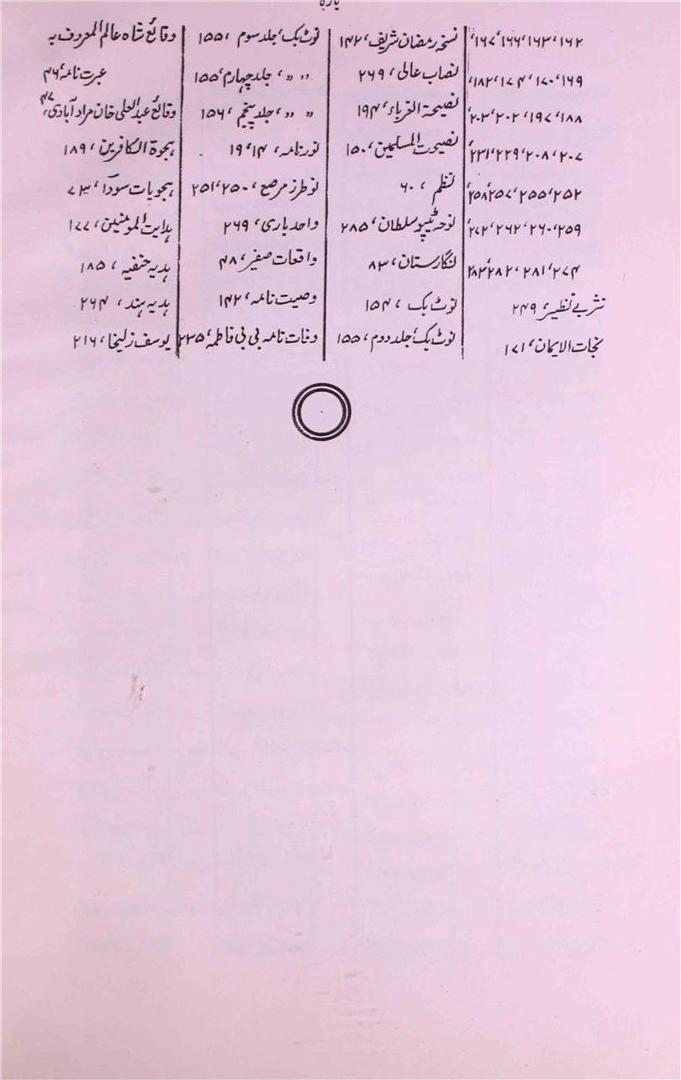 ۱۶۲، ۱۶۳، ۱۶۶، ۱۶۷،
۱۶۹، ۱۷۰، ۱۷۴، ۱۸۲،
۱۸۸، ۱۹۷، ۲۰۲، ۲۰۳،
۲۰۷، ۲۰۸، ۲۲۹، ۲۳۱،
۲۵۲، ۲۵۵، ۲۵۷، ۲۵۸،
۲۵۹، ۲۶۰، ۲۶۲، ۲۷۲،
۲۷۴، ۲۸۱، ۲۸۲،
نثر بے نظیر، ۲۴۹
نجات الایمان، ۱۷۱
نسخہ رمضان شریف، ۱۴۲
نصاب عالی، ۲۶۹
نصیحۃ الغرباء، ۱۹۴
نصیحت المسلمین، ۱۵۰
نظم، ۶۰
نوحہ ٹیپو سلطان، ۲۸۵
نگارستان، ۸۳
نوٹ بک، ۱۵۴
نوٹ بک، جلد دوم، ۱۵۵
نوٹ بک، جلد سوم، ۱۵۵
〃 〃، جلد چہارم، ۱۵۵
〃 〃، جلد پنجم، ۱۵۶
نورنامہ، ۱۴، ۱۹
نو طرز مرصع، ۲۵۰، ۲۵۱
واحد باری، ۲۶۹
واقعات صفیر، ۴۸
وصیت نامہ، ۱۴۲
وفات نامہ بی بی فاطمہ، ۲۳۵
وقائع شاہ عالم المعروف بہ
عبرت نامہ، ۴۶
وقائع عبدالعلی خان مرادآبادی، ۴۷
ہجوۃ الکافرین، ۱۸۹
ہجویات سودا، ۷۳
ہدایت المومنین، ۱۷۷
ہدیہ حنفیہ، ۱۸۵
ہدیہ ہند، ۲۶۴
یوسف زلیخا، ۲۱۶